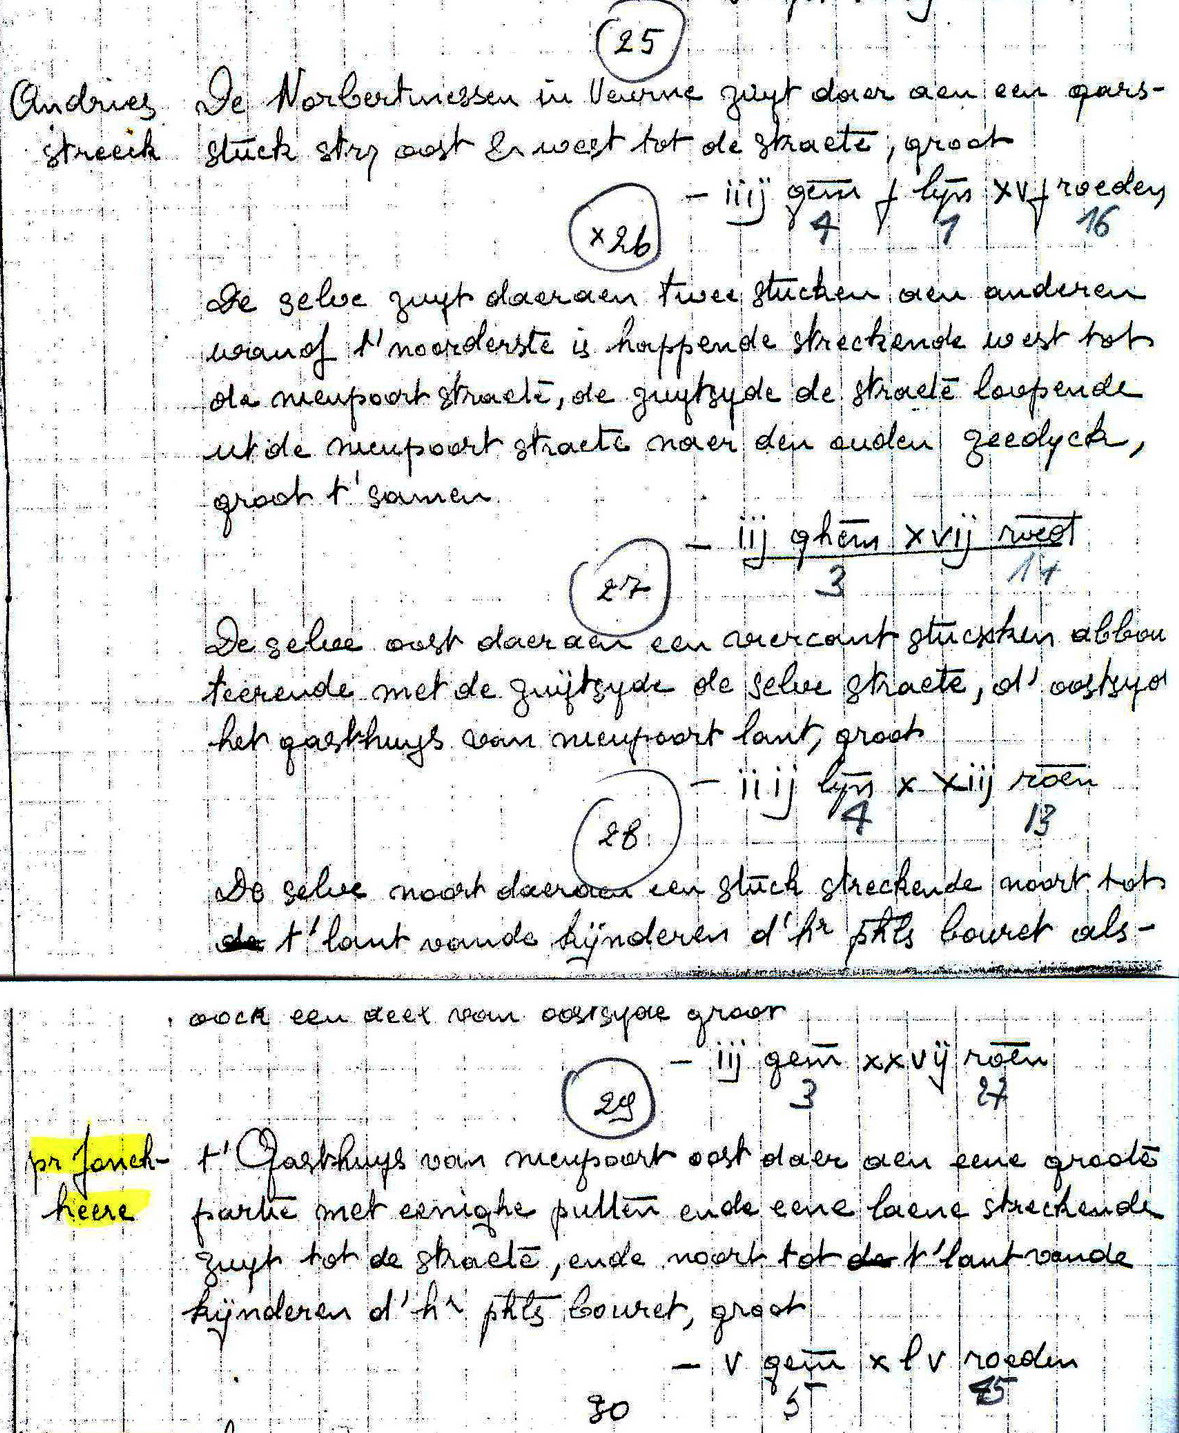 25
Andries De Norbertinessen in Veurne zuyt daer aen een gars-
streeck stuck strz oost & west tot de straete, groot
- iiij gem j lyn xvj roeden
4 1 16
x26
De selve zuyt daeraen twee stucken aen anderen
wanof t'noorderste is happende streckende west tot
de nieupoort straete, de zuytzyde de straete loopende
ut de nieupoort straete naer den ouden zeedyck,
groot t'samen
- iij ghem xvij roed
3 17
27
De selve oost daeraen een viercant stucxken abbou
teerende met de zuijtzyde de selve straete, d'oostzyd
het gasthuys van nieupoort lant, groot
- iiij lyn x xiij roen
4 13
28
De selve noort daeraen een stuck streckende noort tot
de t'lant vande kijnderen d'hr phls bouret als-
oock een deel van oostzyde groot
- iij gem xxvij roen
3 27
29
pr Jonck- t'Gasthuys van nieupoort oost daer aen eene groote
heere partie met eenighe putten ende eene laene streckende
zuyt tot de straete, ende noort tot de t'lant vande
kijnderen d'hr phls bouret, groot
- v gem xlv roeden
5 45
30